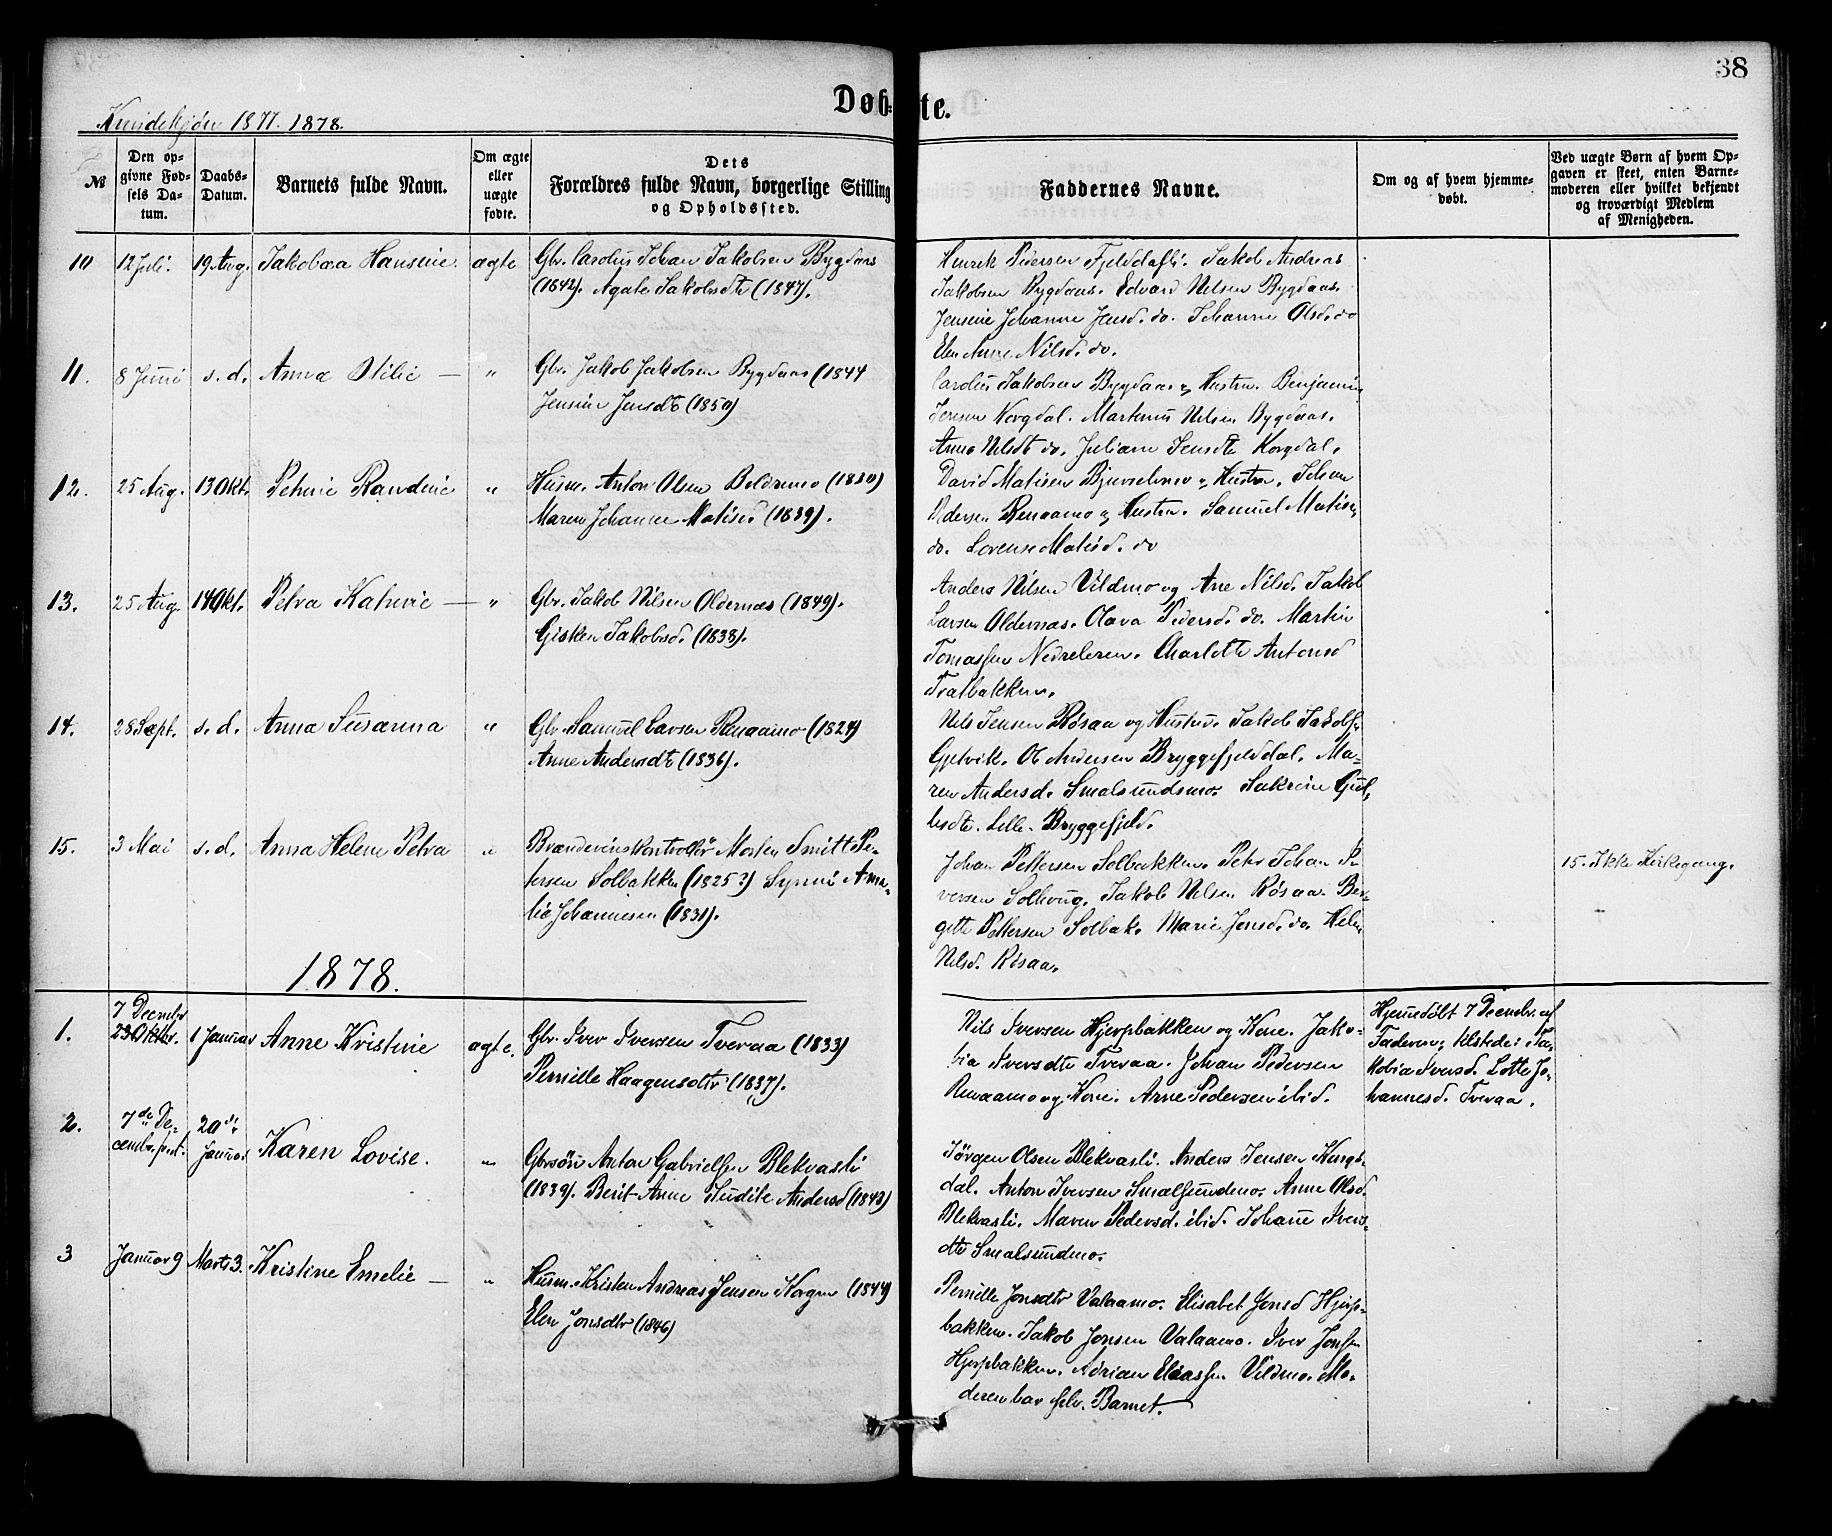 38
Døb-te.
Kvindekjøn 1877. 1878.
№
Den opgivne Fødsels Datum.
Daabs-Datum.
Barnets fulde Navn.
Om ægte eller uægte fødte.
Dets
Forældres fulde Navn, borgerlige Stilling
og Opholdssted.
Faddernes Navne.
Om og af hvem hjemmedøbt.
Ved uægte Børn af hvem Opgaven er skeet, enten Barnemoderen eller hvilket bekjendt og troværdigt Medlem af Menigheden.
10 12 Juli. 19 Aug. Jakobæa Hansine. ægte Gbr. Carolus Johan Jakobsen Bygdaas
(1842). Agate Jakobsdt (1847).
Henrik Pedersen Fjelddalsli. Jakob Andreas
Jakobsen Bygdaas. Edvard Nilsen Bygdaas.
Jensine Johanne Jensd. do. Johanne Olsd. do
Elen Anne Nilsd. do.
11. 8 Juni s. d. Anna Otilie — " Gbr. Jakob Jakobsen Bygdaas (1844
Jensine Jensdt (1850)
Carolus Jakobsen Bygdaas og Hustru. Benjamin
Jensen Korgdal. Martinus Nilsen Bygdaas.
Anne Nilsdt do. Juliane Jensdt Korgdal.
12. 25 Aug. 13 Okt. Petrine Randine " Husm. Anton Olsen Boldremo (1830)
Maren Johanne Matisd (1839).
David Matisen Bjurselvmo og Hustru. Johan
Pedersen Renaamo og Hustru. Samuel Matisen
do. Lorense Matisd. do
13. 25 Aug. 14 Okt. Petra Katrine — " Gbr. Jakob Nilsen Oldernæs (1849).
Gisken Jakobsd. (1838).
Anders Nilsen Vildmo og Ane Nilsd. Jakob
Larsen Oldernæs. Olava Pedersd. do. Martin
Tomassen Nedreleren. Charlotte Antonsd
Tratbakken.
14. 28 Sept. s. d. Anna Susanna " Gbr. Samuel Larsen Renaamo (1824)
Anne Andersdt (1836).
Nils Jensen Røsaa og Hustru. Jakob Jakobs.
Gjetvik. Ol Andersen Bryggefjelddal. Maren
Andersd. Smalsundmo.
Lille-Bryggefjeld.
15. 3 Mai s. d. Anna Helene Petra " Brændevinskontrollør Morten Smitt Petersen
Solbakken (1825?) Synni Amalie
Johannesen (1831).
Johan Pettersen Solbakken. Petr Johan
Solhoug. Jakob Nilsen Røsaa. Bergitte
Pettersen Solbak. Marie Jonsd. do. Helen
Nilsd. Røsaa.
15. Ikke Kirkegang.
1878.
1. 7 Decembr 23 Oktbr. 1 Januar Anne Kristine ægte. Gbr. Iver Iversen Tveraa (1833)
Pernille Haagensdtr (1837).
Nils Iversen Hjerpbakken og Kone. Jakobia
Iversdtr Tveraa. Johan Pedersen
Renaamo og Kone. Arne Pedersen ibid.
Hjemedøbt 7 Decembr. af
Faderen, tilstede: Jakobia
Iversd. Lotte Johannesd.
Tveraa.
2. 7de December 20de Januar Karen Lovise. " Gbrsøn Anton Gabrielsen Blekvasli
(1839). Berit Anne Judite Andersd (1843)
Jørgen Olsen Blekvasli. Anders Jensen Korgdal.
Anton Iversen Smalsundmo. Anne Olsd.
Blekvasli. Maren Pedersd. ibid. Johane Iversdtr
Smalsundmo.
3 Januar 9 Marts 3. Kristine Emelie — " Husm. Kristen Andreas Jensen Korgen (1844)
Elen Jonsdtr (1846)
Pernille Jonsdtr Valaamo. Elisabet Jonsd Hjerpbakken.
Jakob Jonsen Valaamo. Iver Jonsen
Hjerpbakken. Adrian Eliassen Vildmo. Moderen
bar selv Barnet.